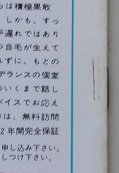 は積極果敢
。しかも、すっ
手遅れではあり
や自毛が生えて
れずに、もとの
デランスの個室
のいくまで話し
バイスでお応え
方は、無料訪問
2年間完全保証
申し込み下さい。
しつけ下さい。